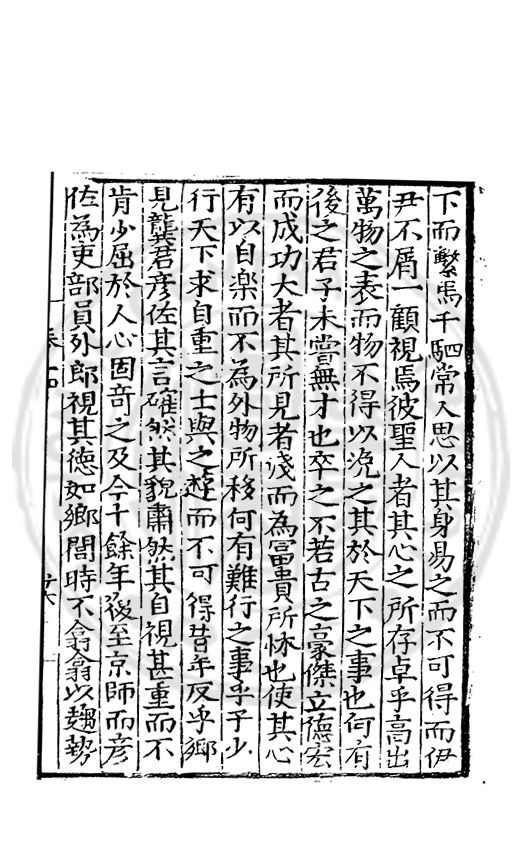 下而繫馬千駟常人思以其身易之而不可得而伊
尹不屑一顧視焉彼聖人者其心之所存卓乎高出
萬物之表而物不得以浼之其於天下之事也何有
後之君子未嘗無才也卒之不若古之豪傑立德宏
而成功大者其所見者淺而為冨貴所怵也使其心
有以自楽而不為外物所移何有難行之事乎予少
行天下求自重之士與之遊而不可得昔年反乎鄉
見龔君彦佐其言確然其貌肅然其自視甚重而不
肯少屈於人心固竒之及今十餘年復至京師而彦
佐為吏部員外郎視其徳如鄉閭時不翕翕以趨勢